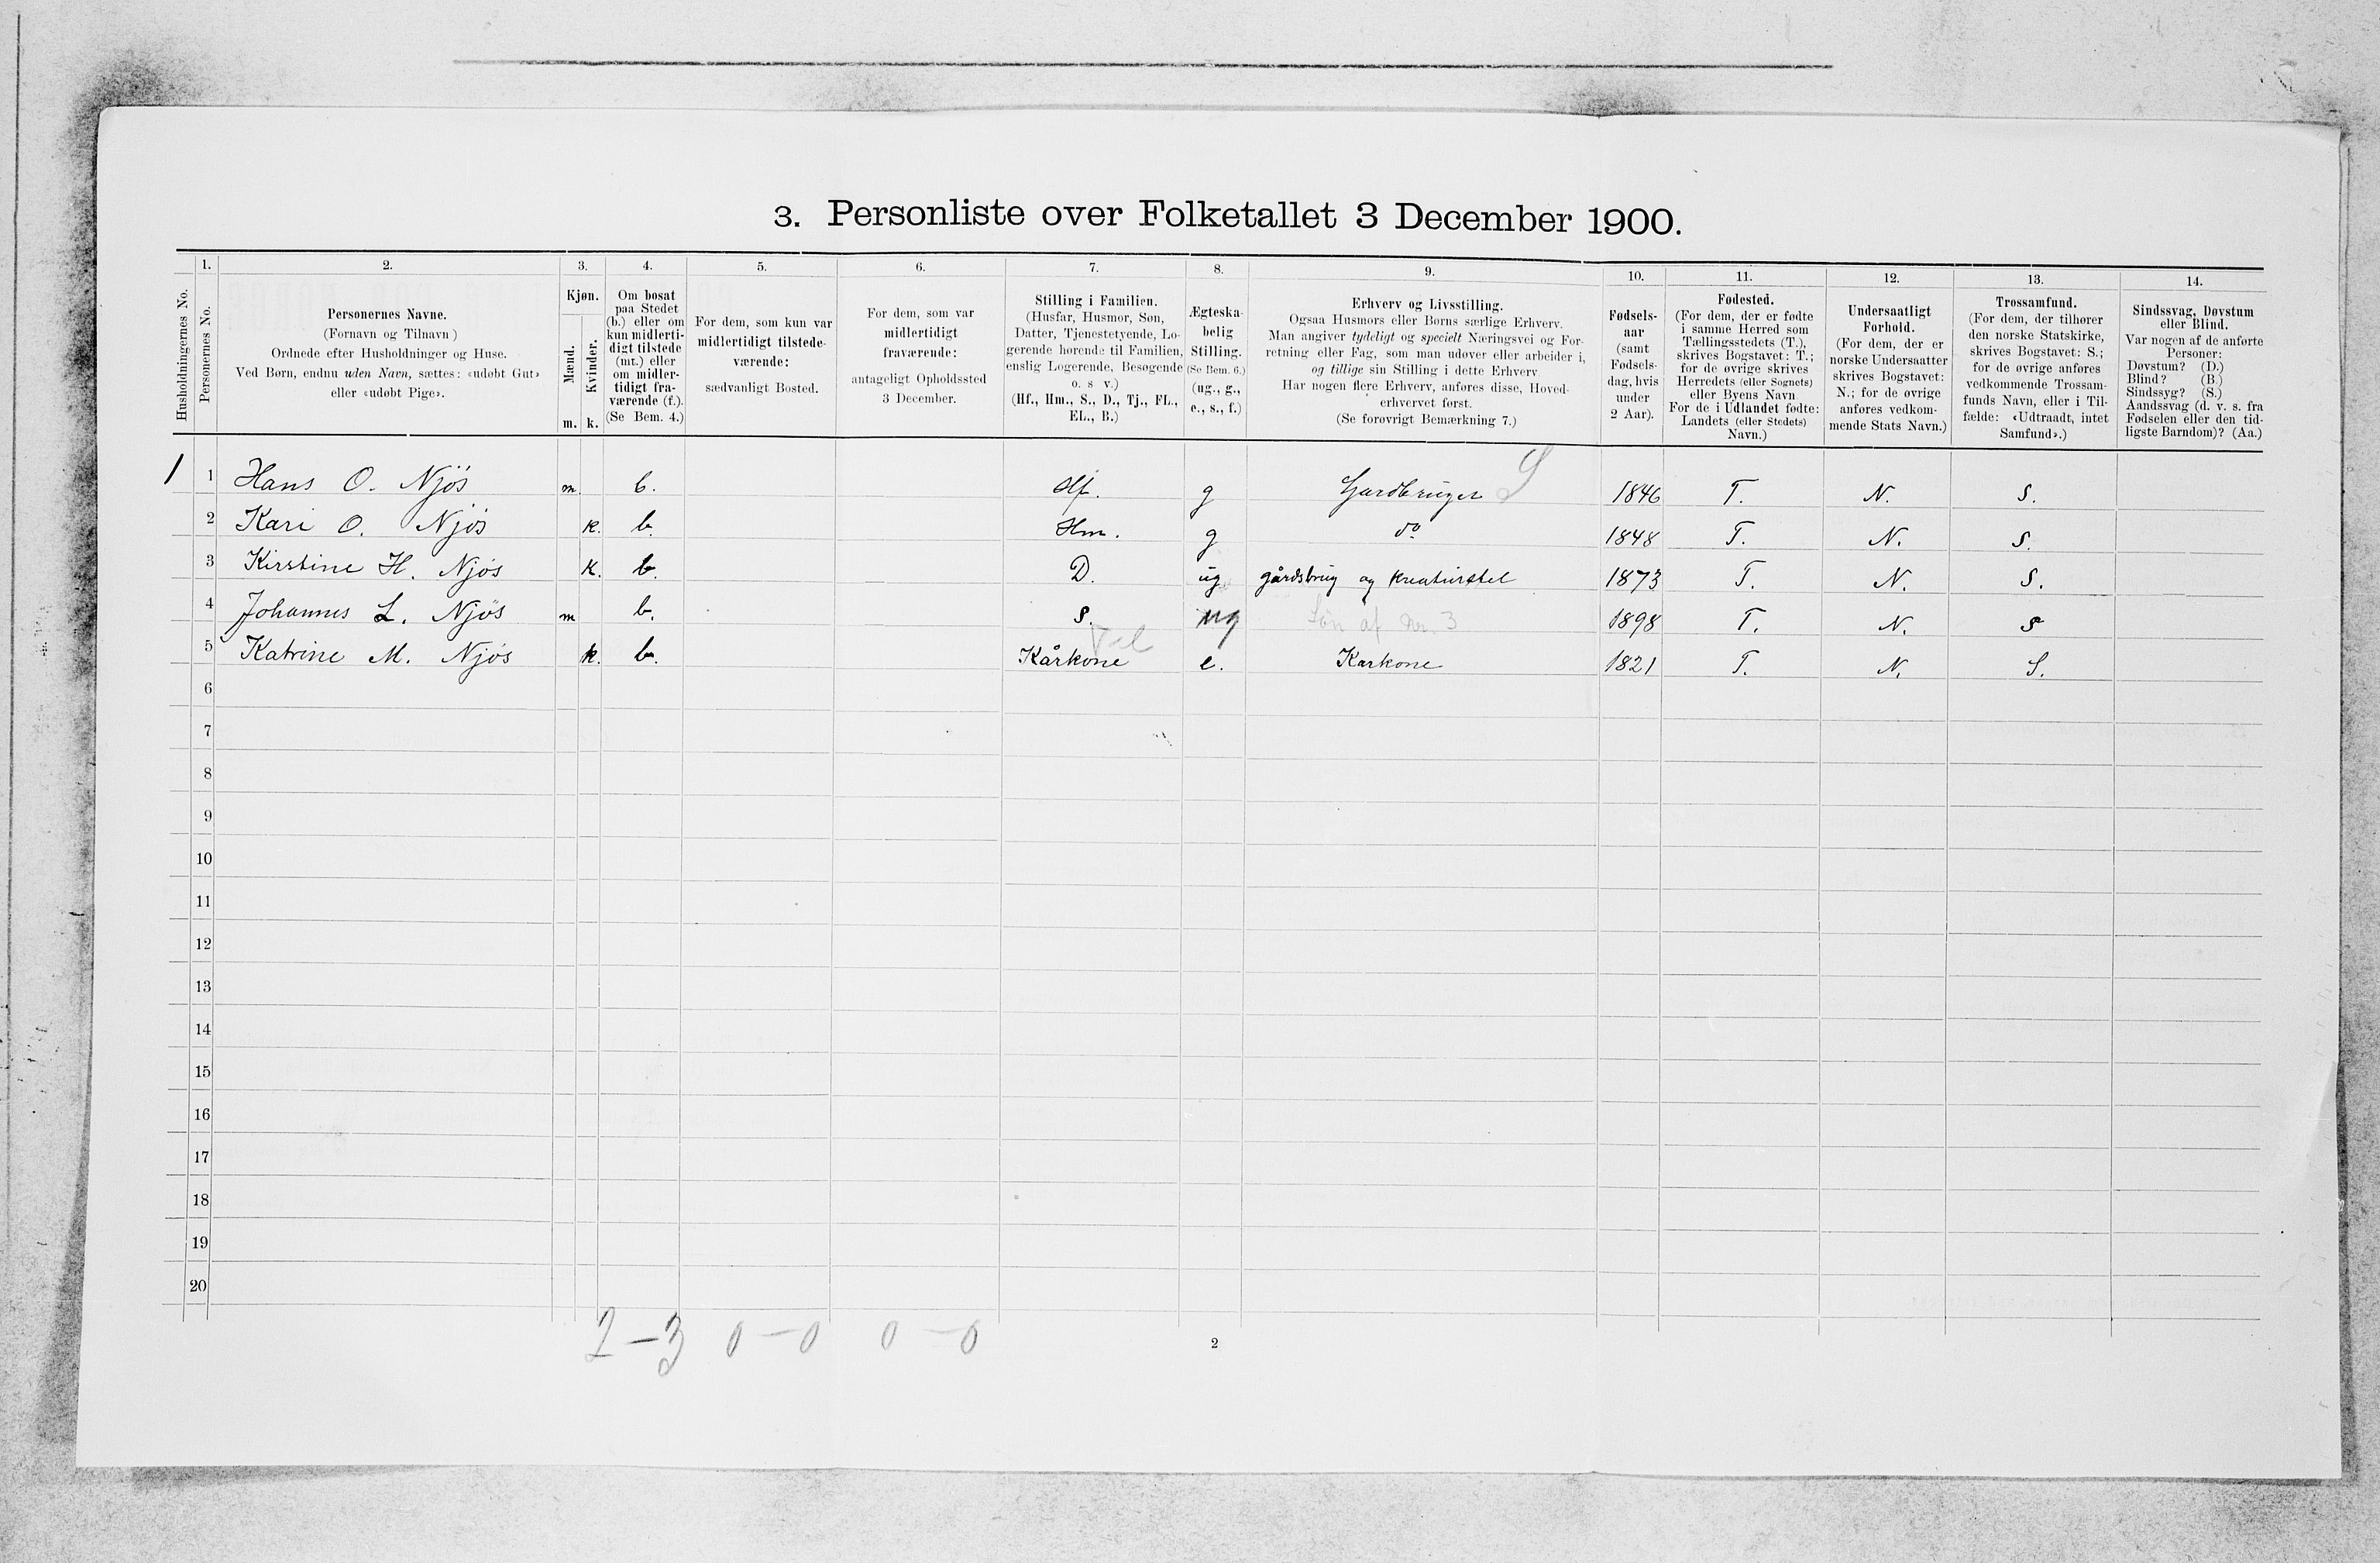 3. Personliste over Folketallet 3 December 1900.
Husholdningernes No.
1.
Personernes No.
2.
Personernes Navne.
(Fornavn og Tilnavn)
Ordnede efter Husholdninger og Huse.
Ved Børn, endnu uden Navn, sættes: «udøbt Gut»
eller «udøbt Pige».
3.
Kjøn.
Mænd.
Kvinder.
m. k.
4.
Om bosat
paa Stedet
(b.) eller om
kun midlerti-
digt tilstede
(mt.) eller
om midler-
tidigt fra-
værende (f.).
(Se Bem. 4.)
5.
For dem, som kun var
midlertidigt tilstede-
værende:
sædvanligt Bosted.
6.
For dem, som var
midlertidigt
fraværende:
antageligt Opholdssted
3 December.
7.
Stilling i Familien.
(Husfar, Husmor, Søn,
Datter, Tjenestetyende, Lo-
gerende hørende til Familien,
enslig Logerende, Besøgende
o. s v.)
(Hf., Hm., S., D., Tj., FL.,
EL., B.)
8.
Ægteska-
belig
Stilling.
(Se Bem. 6.)
(ug., g.,
e., s., f.)
9.
Erhverv og Livsstilling.
Ogsaa Husmors eller Børns særlige Erhverv.
Man angiver tydeligt og specielt Næringsvei og For-
retning eller Fag, som man udøver eller arbeider i,
og tillige sin Stilling i dette Erhverv
Har nogen flere Erhverv, anføres disse, Hoved-
erhvervet først.
(Se forøvrigt Bemærkning 7.)
10.
Fødsels-
aar
(samt
Fødsels-
dag, hvis
under
2 Aar).
11.
Fødested.
(For dem, der er fødte
i samme Herred som
Tællingsstedets (T.),
skrives Bogstavet: T.;
for de øvrige skrives
Herredets (eller Sognets)
eller Byens Navn
For de i Udlandet fødte:
Landets (eller Stedets)
Navn.)
12.
Undersaatligt
Forhold.
(For dem, der er
norske Undersaatter
skrives Bogstavet:
N.; for de øvrige
anføres vedkom-
mende Stats Navn.)
13.
Trossamfund.
(For dem, der tilhører
den norske Statskirke,
skrives Bogstavet: S.;
for de øvrige anføres
vedkommende Trossam-
funds Navn, eller i Til-
fælde: «Udtraadt, intet
Samfund».)
14.
Sindssvag, Døvstum
eller Blind.
Var nogen af de anførte
Personer:
Døvstum? (D.)
Blind? (B.)
Sindssyg? (S.)
Aandssvag (d. v. s. fra
Fødselen eller den tid-
ligste Barndom)? (Aa.)
1 1 Hans O. Njös m. b. Hf. g Gardbruger S 1846 T. N. S.
2 Kari O. Njös k. b. Hm. g do 1848 T. N. S.
3 Kirstine H. Njös k. b. D. ug gårdsbrug og kreaturstel 1873 T. N. S.
4 Johannes L. Njös m b. S. ug Søn af Nr. 3 1898 T. N. S
5 Katrine M. Njös k. b. Kårkone e. Karkone 1821 T. N. S.
6
7
8
9
10
11
12
13
14
15
16
17
18
19
20
2-3 0-0 0-0
2